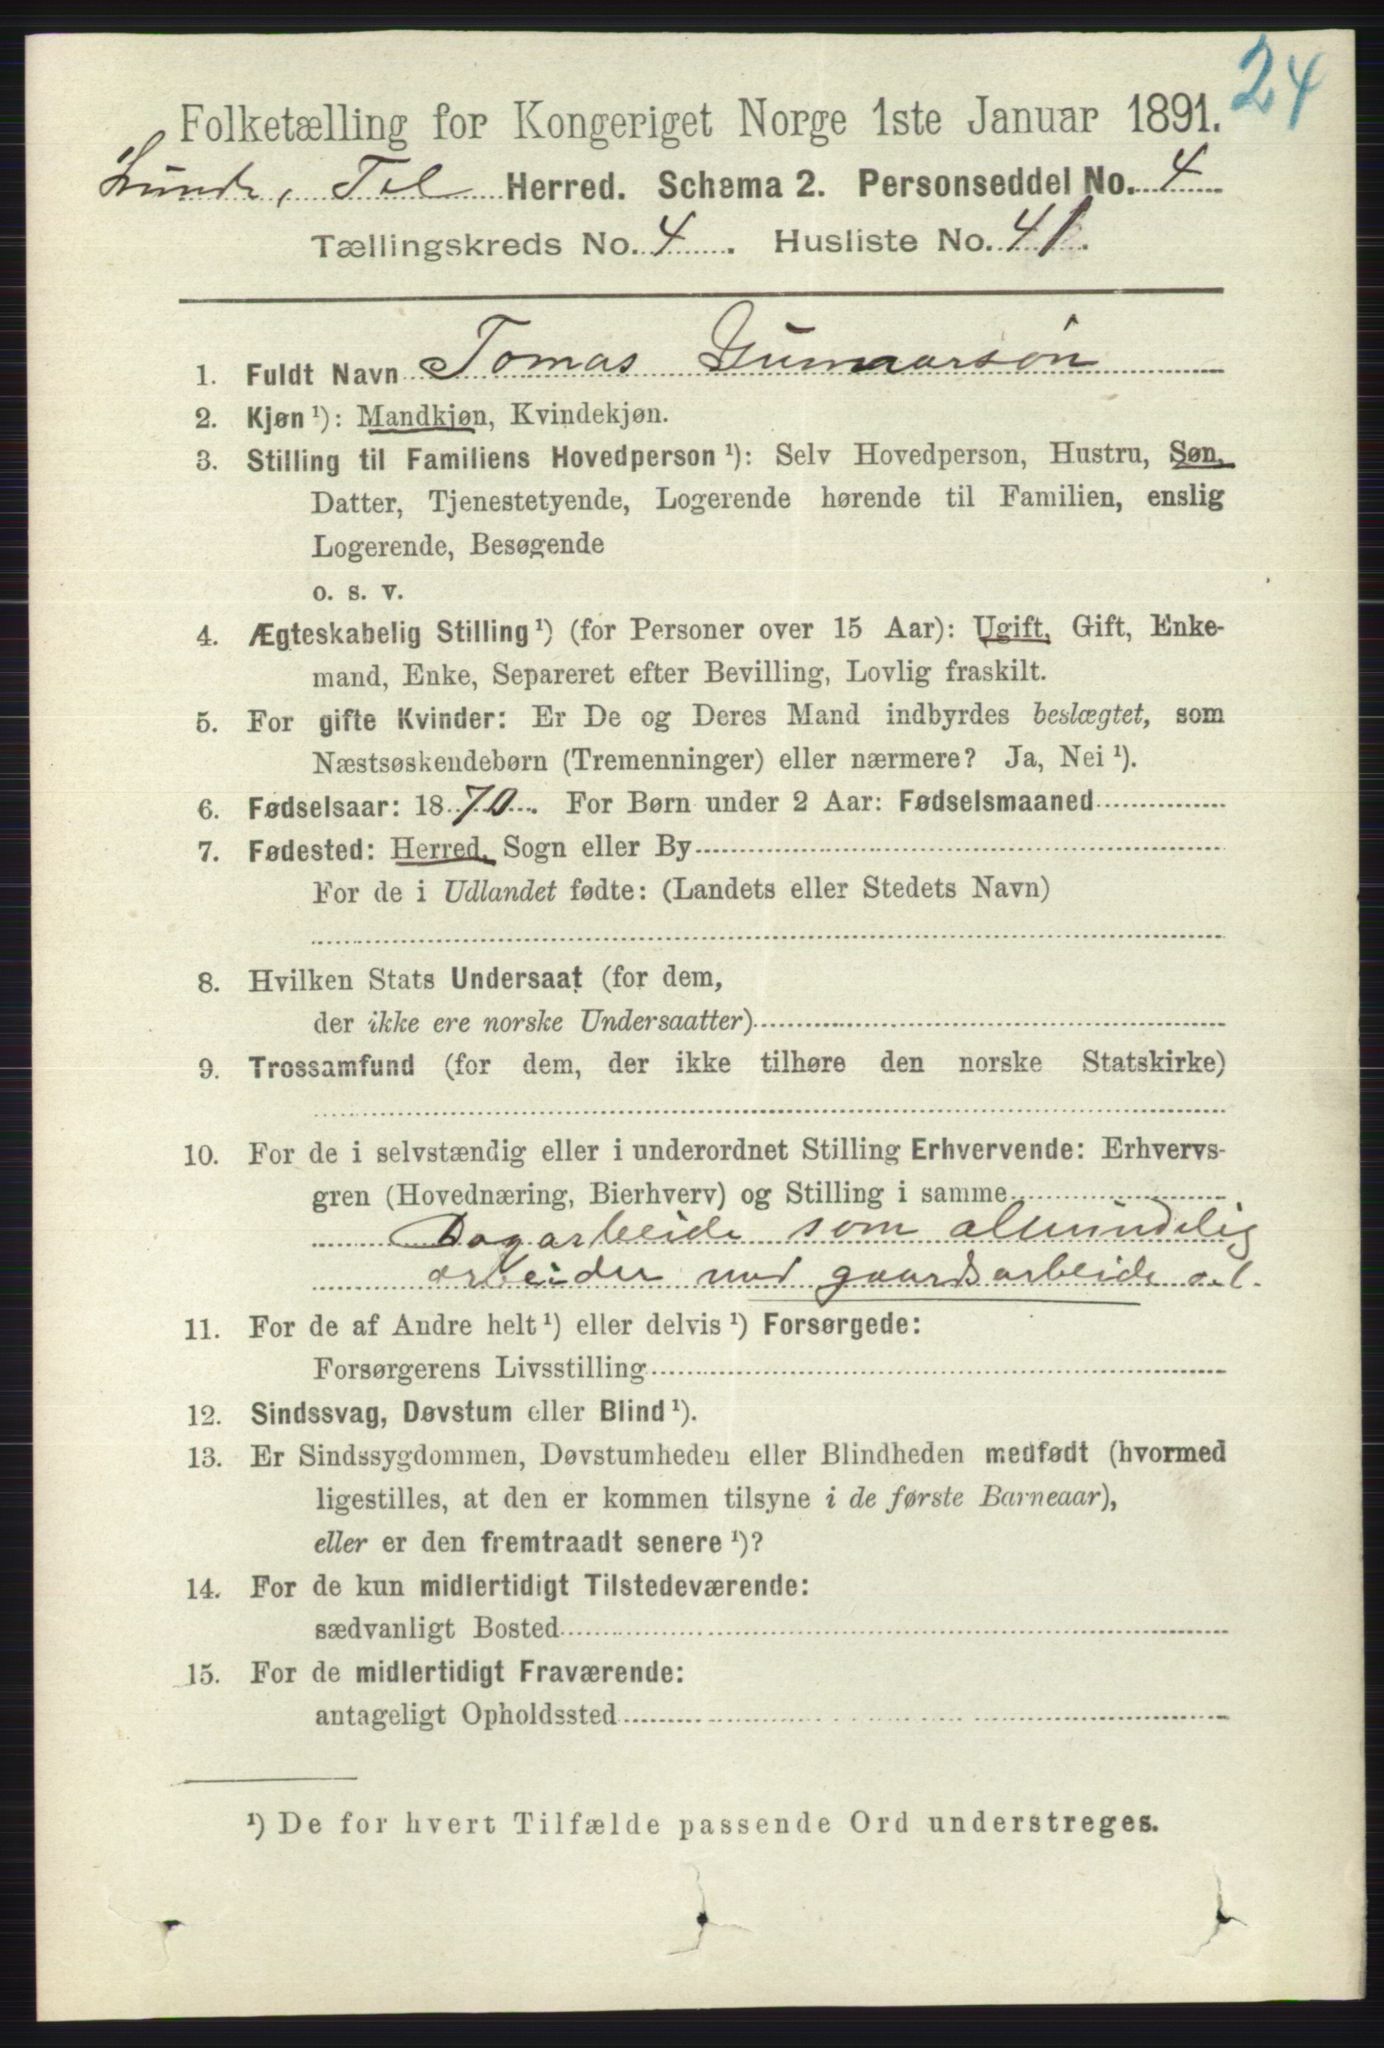 24
Folketælling for Kongeriget Norge 1ste Januar 1891.
Lunde, Tel Herred. Schema 2. Personseddel No. 4
Tællingskreds No. 4. Husliste No. 41.
1. Fuldt Navn Tomas Gunnarsøn
2. Kjøn ¹): Mandkjøn, Kvindekjøn.
3. Stilling til Familiens Hovedperson ¹): Selv Hovedperson, Hustru, Søn,
Datter, Tjenestetyende, Logerende hørende til Familien, enslig
Logerende, Besøgende
o. s. v.
4. Ægteskabelig Stilling ¹) (for Personer over 15 Aar): Ugift, Gift, Enke-
mand, Enke, Separeret efter Bevilling, Lovlig fraskilt.
5. For gifte Kvinder: Er De og Deres Mand indbyrdes beslægtet, som
Næstsøskendebørn (Tremenninger) eller nærmere? Ja, Nei ¹).
6. Fødselsaar: 1870. For Børn under 2 Aar: Fødselsmaaned
7. Fødested: Herred, Sogn eller By
For de i Udlandet fødte: (Landets eller Stedets Navn)
8. Hvilken Stats Undersaat (for dem,
der ikke ere norske Undersaatter)
9. Trossamfund (for dem, der ikke tilhøre den norske Statskirke)
10. For de i selvstændig eller i underordnet Stilling Erhvervende: Erhvervs-
gren (Hovednæring, Bierhverv) og Stilling i samme
Dagarbeide som almindelig
arbeider med gaardsarbeide o.l.
11. For de af Andre helt ¹) eller delvis ¹) Forsørgede:
Forsørgerens Livsstilling
12. Sindssvag, Døvstum eller Blind ¹).
13. Er Sindssygdommen, Døvstumheden eller Blindheden medfødt (hvormed
ligestilles, at den er kommen tilsyne i de første Barneaar),
eller er den fremtraadt senere ¹)?
14. For de kun midlertidigt Tilstedeværende:
sædvanligt Bosted
15. For de midlertidigt Fraværende:
antageligt Opholdssted
¹) De for hvert Tilfælde passende Ord understreges.